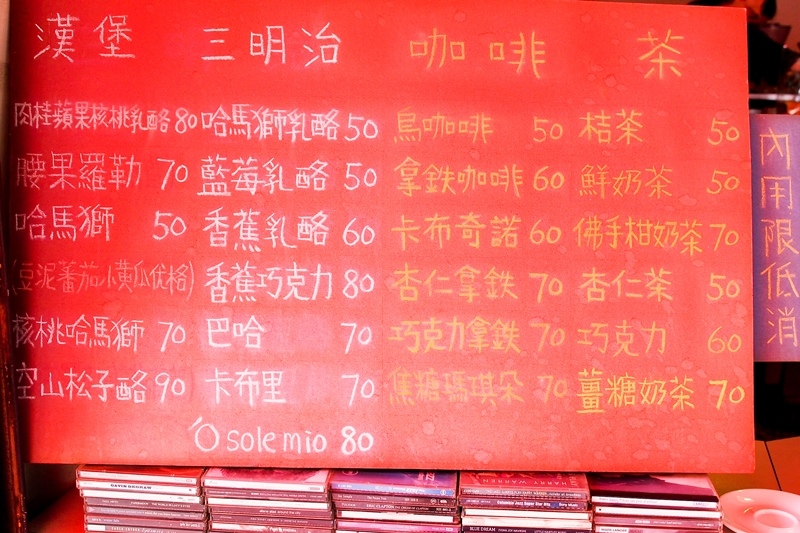 漢堡
肉桂蘋果核桃乳酪80
腰果羅勒 70
哈馬獅 50
(豆泥蕃茄小黃瓜优格)
核桃哈馬獅 70
空山松子酪90
三明治
哈馬獅乳酪50
藍莓乳酪 50
香蕉乳酪 60
香蕉巧克力80
巴哈 70
卡布里 70
O sole mio 80
咖啡
烏咖啡 50
拿鐵咖啡60
卡布奇諾60
杏仁拿鐵 70
巧克力拿鐵 70
焦糖瑪琪朵 70
茶
桔茶 50
鮮奶茶 50
佛手柑奶茶70
杏仁茶 50
巧克力 60
薑糖奶茶70
內用限低消
GAVIN DEGRAW
ERIC CLAPTON
HARRY WARREN
BLUE DREAM